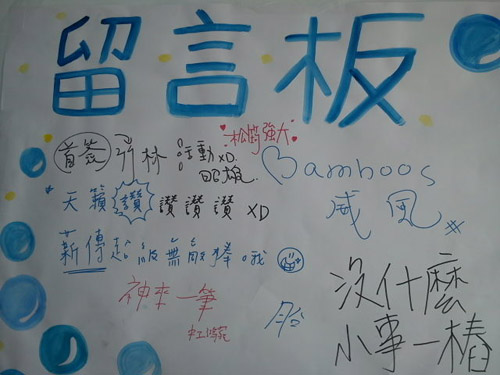 留言板
松濤強大
首簽 竹林 活動XD
Bamboos
天籟讚 讚讚讚 XD
威風
薪傳超級無敵棒哦
神來一筆
沒什麼
小事一樁